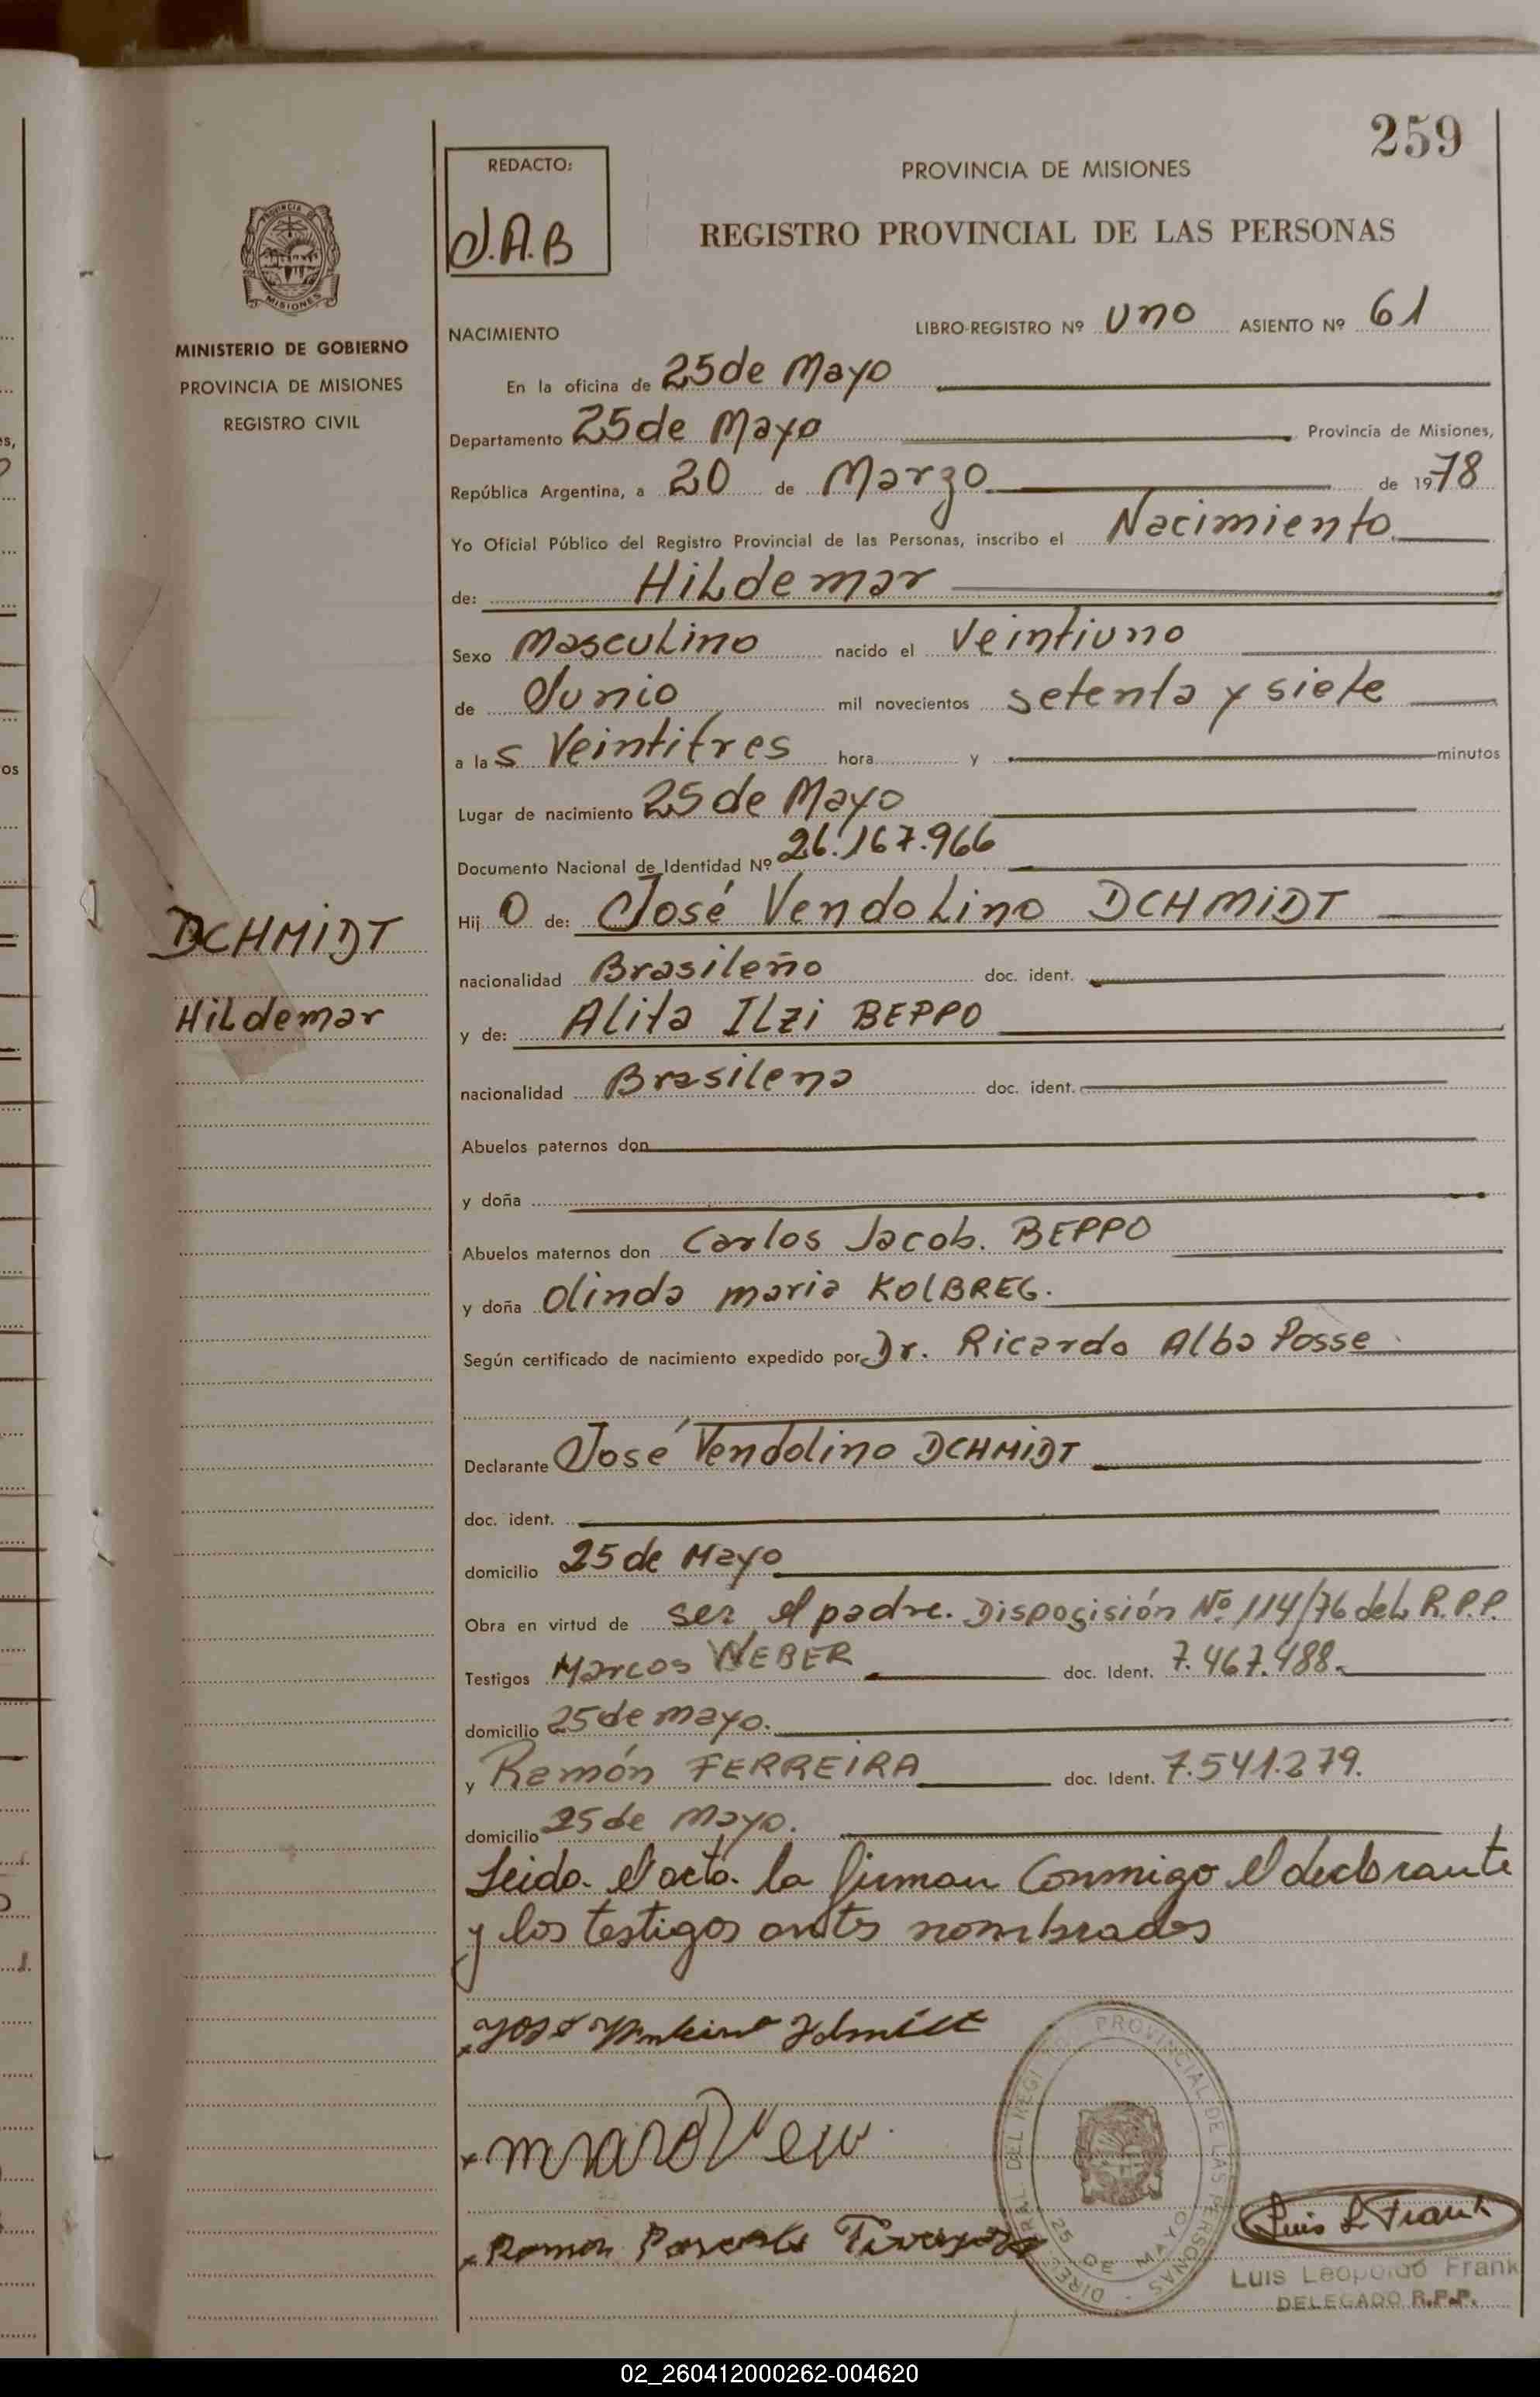 259
REDACTO:
J.A.B
PROVINCIA DE MISIONES
REGISTRO PROVINCIAL DE LAS PERSONAS
MISIONES
MINISTERIO DE GOBIERNO
PROVINCIA DE MISIONES
REGISTRO CIVIL
NACIMIENTO
LIBRO-REGISTRO Nº uno ASIENTO Nº 61
En la oficina de 25 de Mayo
Departamento 25 de Mayo Provincia de Misiones,
República Argentina, a 20 de Marzo de 1978
Yo Oficial Público del Registro Provincial de las Personas, inscribo el Nacimiento
de: HiLdemar
Sexo MascuLino nacido el Veintiuno
de Junio mil novecientos setenta y siete
a las Veintitres hora y minutos
Lugar de nacimiento 25 de Mayo
Documento Nacional de Identidad Nº 26.167.966
DCHMIDT
Hildemar
Hij O de: José VendoLino DCHMIDT
nacionalidad Brasileño doc. ident.
y de: Alita ILzi BEPPO
nacionalidad Brasilena doc. ident.
Abuelos paternos don
y doña
Abuelos maternos don Carlos Jacob. BEPPO
y doña Olinda maria KOLBREG.
Según certificado de nacimiento expedido por Dr. Ricardo Alba Posse
Declarante José Vendolino DCHMIDT
doc. ident.
domicilio 25 de Mayo
Obra en virtud de ser el padre. Disposición Nº 114/76 deL R.P.P.
Testigos Marcos WEBER doc. Ident. 7.467.488.
domicilio 25 de mayo.
y Ramón FERREIRA doc. Ident. 7.541.279.
domicilio 25 de Mayo.
Leida el acta la firman Conmigo el declarante
y los testigos antes nombrados
Ramon
PROVINCIAL DE LAS PERSONAS
25 DE MAYO
Luis L Frank
Luis Leopoldo Frank
DELEGADO R.P.P.
02_260412000262-004620